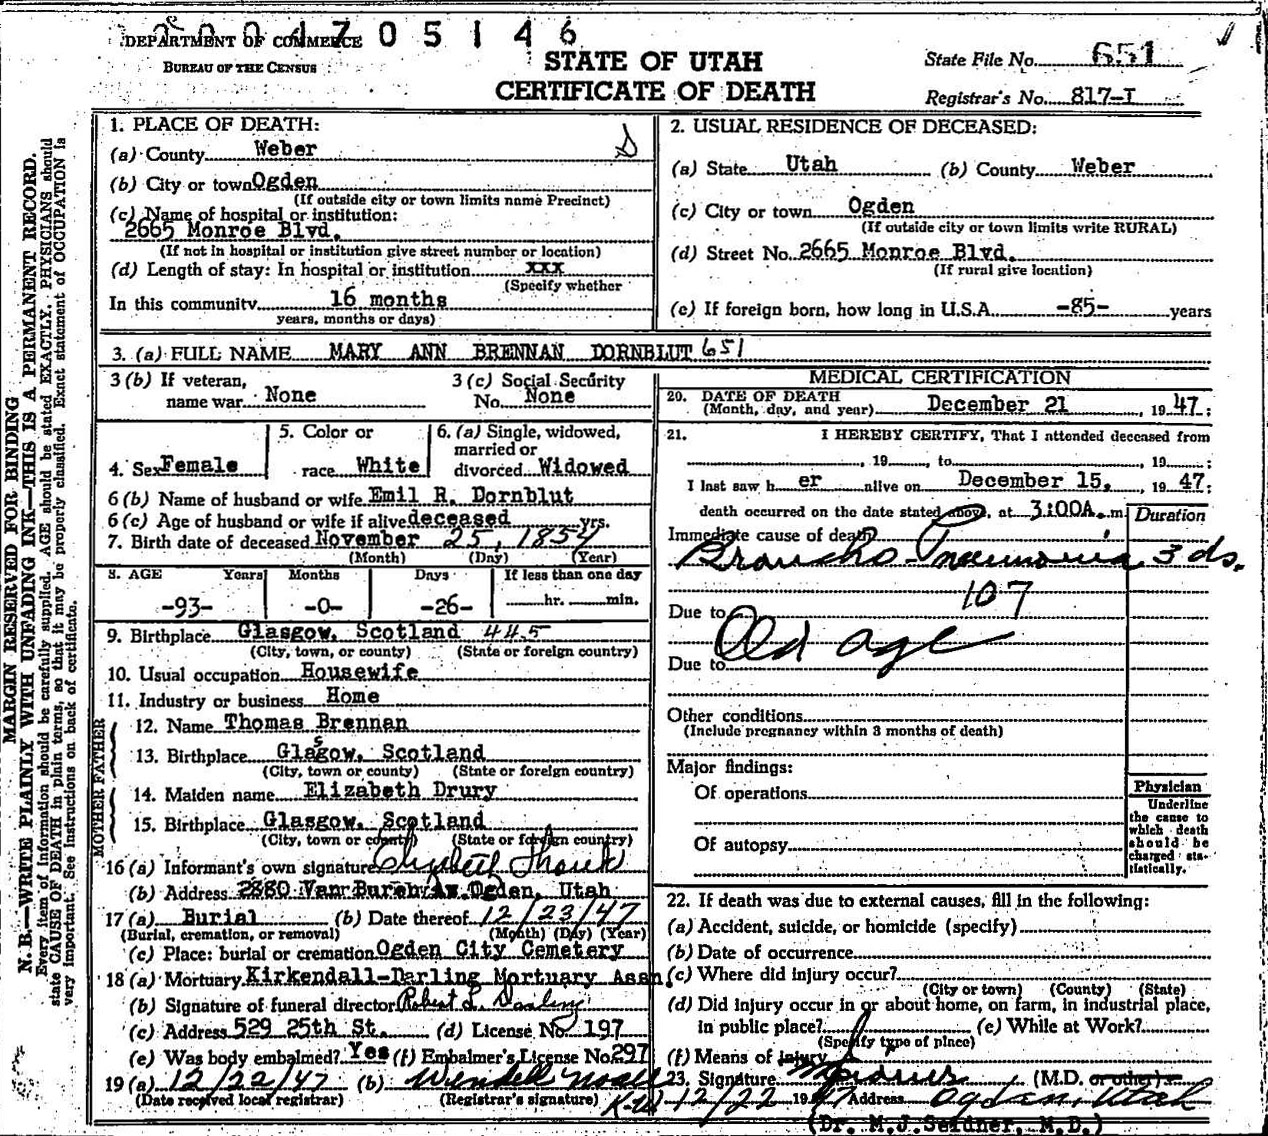 2004705146
DEPARTMENT OF COMMERCE
BUREAU OF THE CENSUS
STATE OF UTAH
CERTIFICATE OF DEATH
State File No. 651
Registrar's No. 817-I
MARGIN RESERVED FOR BINDING
N. B.—WRITE PLAINLY WITH UNFADING INK—THIS IS A PERMANENT RECORD.
Every item of information should be carefully supplied. AGE should be stated EXACTLY. PHYSICIANS should
state CAUSE OF DEATH in plain terms, so that it may be properly classified. Exact statement of OCCUPATION is
very important. See instructions on back of certificate.
1. PLACE OF DEATH:
(a) County Weber
(b) City or town Ogden
(If outside city or town limits name Precinct)
(c) Name of hospital or institution:
2665 Monroe Blvd.
(If not in hospital or institution give street number or location)
(d) Length of stay: In hospital or institution xxx
(Specify whether
In this community 16 months
years, months or days)
2. USUAL RESIDENCE OF DECEASED:
(a) State Utah (b) County Weber
(c) City or town Ogden
(If outside city or town limits write RURAL)
(d) Street No. 2665 Monroe Blvd.
(If rural give location)
(e) If foreign born, how long in U.S.A. -85- years
3. (a) FULL NAME MARY ANN BRENNAN DORNBLUT 651
3 (b) If veteran, name war None
3 (c) Social Security No. None
4. Sex Female
5. Color or race White
6. (a) Single, widowed, married or divorced Widowed
6 (b) Name of husband or wife Emil R. Dornblut
6 (c) Age of husband or wife if alive deceased yrs.
7. Birth date of deceased November 25, 1854
(Month) (Day) (Year)
8. AGE Years Months Days If less than one day
-93- -0- -26- hr. min.
9. Birthplace Glasgow, Scotland 445
(City, town, or county) (State or foreign country)
10. Usual occupation Housewife
11. Industry or business Home
FATHER
12. Name Thomas Brennan
13. Birthplace Glasgow, Scotland
(City, town or county) (State or foreign country)
MOTHER
14. Maiden name Elizabeth Drury
15. Birthplace Glasgow, Scotland
(City, town or county) (State or foreign country)
16 (a) Informant's own signature Elizabeth
(b) Address 2880 Van Buren Av. Ogden, Utah
17 (a) Burial (b) Date thereof 12/23/47
(Burial, cremation, or removal) (Month) (Day) (Year)
(c) Place: burial or cremation Ogden City Cemetery
18 (a) Mortuary Kirkendall-Darling Mortuary Assn.
(b) Signature of funeral director Robert L. Darling
(c) Address 529 25th St. (d) License No 197
(e) Was body embalmed? Yes (f) Embalmer's License No. 297
19 (a) 12/22/47 (b) Wendell
(Date received local registrar) (Registrar's signature)
MEDICAL CERTIFICATION
20. DATE OF DEATH
(Month, day, and year) December 21, 1947;
21. I HEREBY CERTIFY, That I attended deceased from
, 19 , to , 19 ;
I last saw h er alive on December 15, 1947;
death occurred on the date stated above, at 3:00A. m. Duration
Immediate cause of death
Broncho Pneumonia 3 ds.
107
Due to
Old age
Due to
Other conditions
(Include pregnancy within 3 months of death)
Major findings:
Of operations
Of autopsy
Physician
Underline
the cause to
which death
should be
charged sta-
tistically.
22. If death was due to external causes, fill in the following:
(a) Accident, suicide, or homicide (specify)
(b) Date of occurrence
(c) Where did injury occur?
(City or town) (County) (State)
(d) Did injury occur in or about home, on farm, in industrial place,
in public place? (e) While at Work?
(Specify type of place)
(f) Means of injury
23. Signature (M.D. or other)
12/22 1947 Address Ogden, Utah
(Dr. M.J. Seidner, M.D.)